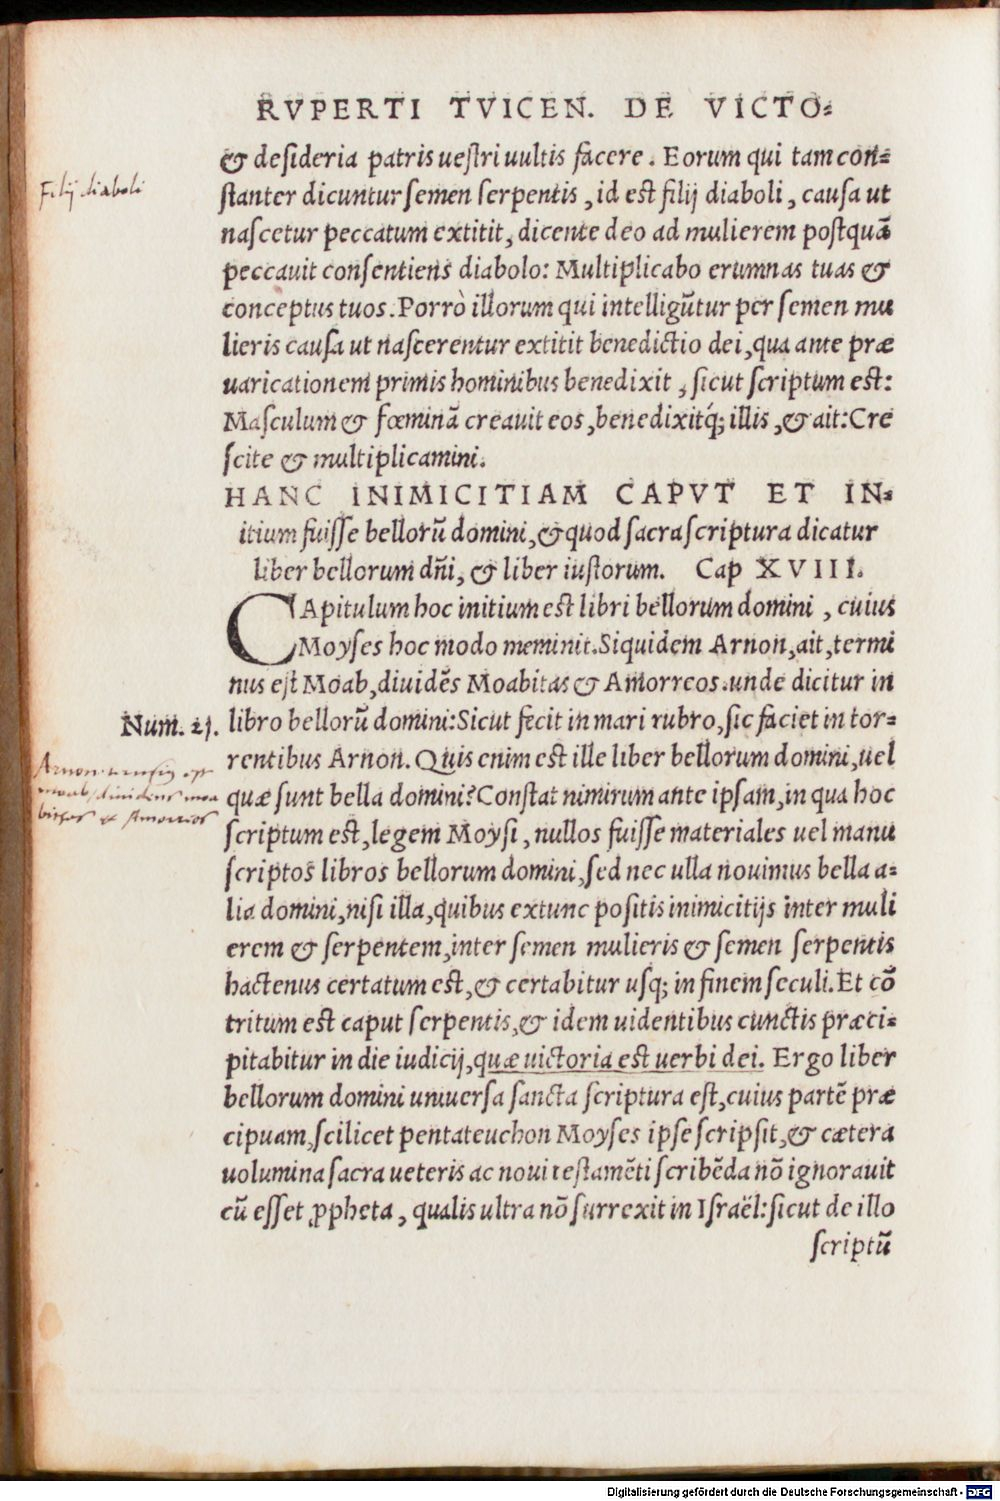 RVPERTI TVICEN. DE VICTO-
& desideria patris uestri uultis facere. Eorum qui tam con-
Filij diaboli
stanter dicuntur semen serpentis, id est filij diaboli, causa ut
nascetur peccatum extitit, dicente deo ad mulierem postquã
peccauit consentiens diabolo: Multiplicabo erumnas tuas &
conceptus tuos. Porrò illorum qui intelligũtur per semen mu
lieris causa ut nascerentur extitit benedictio dei, qua ante præ
uaricationem primis hominibus benedixit, sicut scriptum est:
Masculum & fœminã creauit eos, benedixitq́; illis, & ait: Cre
scite & multiplicamini.
HANC INIMICITIAM CAPVT ET IN-
itium fuisse bellorũ domini, & quod sacra scriptura dicatur
liber bellorum dñi, & liber iustorum. Cap XVIII.
CApitulum hoc initium est libri bellorum domini, cuius
Moyses hoc modo meminit. Siquidem Arnon, ait, termi
nus est Moab, diuidẽs Moabitas & Amorreos. unde dicitur in
Num. 21.
libro bellorũ domini: Sicut fecit in mari rubro, sic faciet in tor-
rentibus Arnon. Quis enim est ille liber bellorum domini, uel
Arnon est
moab, diuidens moa
bitas & Amorreos
quæ sunt bella domini? Constat nimirum ante ipsam, in qua hoc
scriptum est, legem Moysi, nullos fuisse materiales uel manu
scriptos libros bellorum domini, sed nec ulla nouimus bella a-
lia domini, nisi illa, quibus extunc positis inimicitijs inter muli
erem & serpentem, inter semen mulieris & semen serpentis
hactenus certatum est, & certabitur usq; in finem seculi. Et cõ
tritum est caput serpentis, & idem uidentibus cunctis præci-
pitabitur in die iudicij, quæ uictoria est uerbi dei. Ergo liber
bellorum domini uniuersa sancta scriptura est, cuius partẽ præ
cipuam, scilicet pentateuchon Moyses ipse scripsit, & cætera
uolumina sacra ueteris ac noui testamẽti scribẽda nõ ignorauit
cũ esset ꝓpheta, qualis ultra nõ surrexit in Israël: sicut de illo
scriptũ
Digitalisierung gefördert durch die Deutsche Forschungsgemeinschaft - DFG